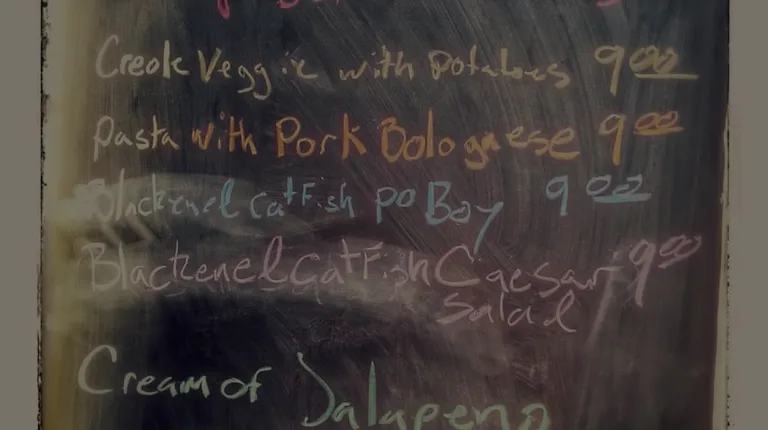 Creole Veggie with Potatoes 9.00
Pasta with Pork Bolognese 9.00
Blackened Catfish Po Boy 9.00
Blackened Catfish Caesar 9.00
Salad
Cream of Jalapeno